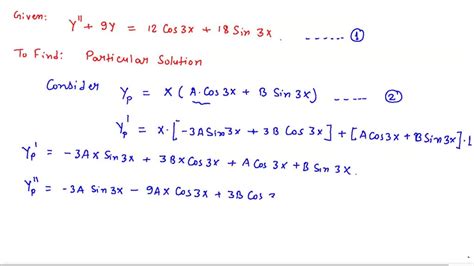 Given: Y'' + 9Y = 12 Cos3x + 18 Sin 3x. ------ ①
To Find: Particular Solution
Consider Yp = x ( A Cos 3x + B Sin 3x ) ----- ②
Yp' = x · [-3A Sin 3x + 3B Cos 3x] + [A Cos 3x + B Sin 3x] · 1
Yp' = -3Ax Sin 3x + 3Bx Cos 3x + A Cos 3x + B Sin 3x.
Yp'' = -3A Sin 3x - 9Ax Cos 3x + 3B Cos 3